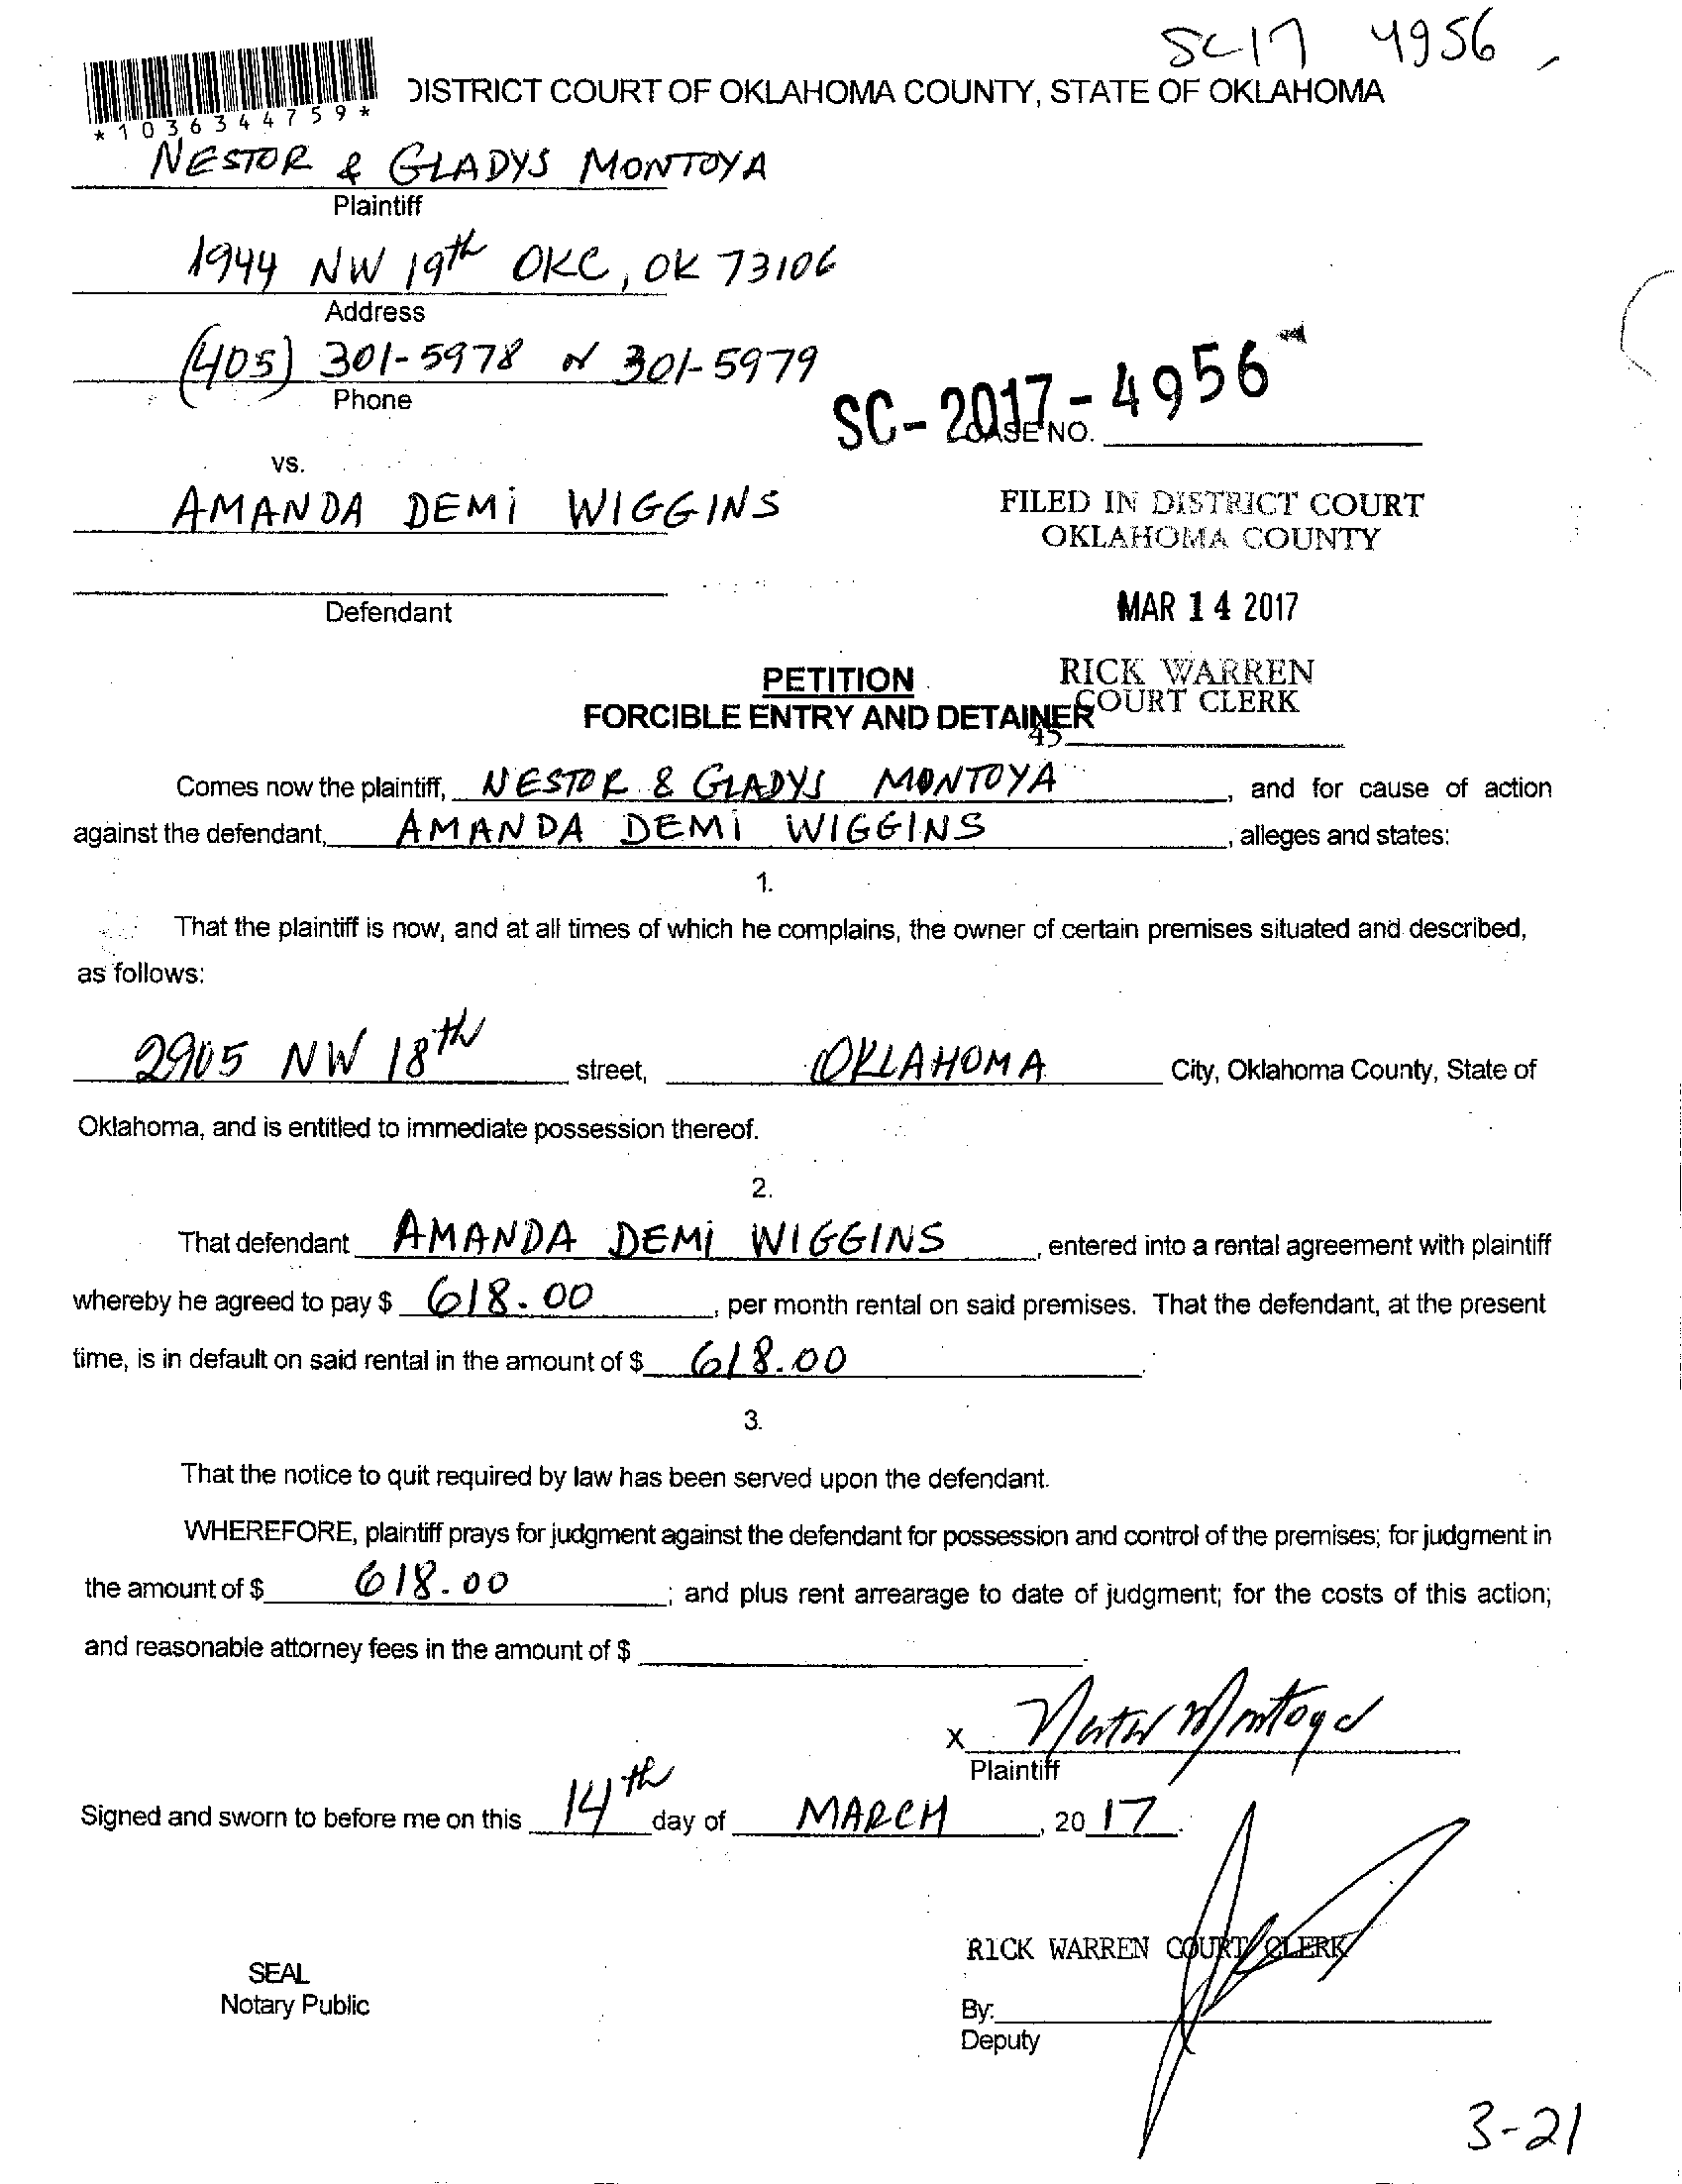 SC17 4956
DISTRICT COURT OF OKLAHOMA COUNTY, STATE OF OKLAHOMA
*1036344759*
NESTOR & GLADYS MONTOYA
Plaintiff
1944 NW 19th OKC, OK 73106
Address
(405) 301-5978 or 301-5979
Phone
SC-2017-4956
CASE NO.
vs.
AMANDA DEMI WIGGINS
FILED IN DISTRICT COURT
OKLAHOMA COUNTY
Defendant
MAR 14 2017
PETITION
RICK WARREN
COURT CLERK
FORCIBLE ENTRY AND DETAINER
45
Comes now the plaintiff, NESTOR & GLADYS MONTOYA, and for cause of action
against the defendant, AMANDA DEMI WIGGINS, alleges and states:
1.
That the plaintiff is now, and at all times of which he complains, the owner of certain premises situated and described,
as follows:
2905 NW 18th street, OKLAHOMA City, Oklahoma County, State of
Oklahoma, and is entitled to immediate possession thereof.
2.
That defendant AMANDA DEMI WIGGINS, entered into a rental agreement with plaintiff
whereby he agreed to pay $ 618.00, per month rental on said premises. That the defendant, at the present
time, is in default on said rental in the amount of $ 618.00.
3.
That the notice to quit required by law has been served upon the defendant.
WHEREFORE, plaintiff prays for judgment against the defendant for possession and control of the premises; for judgment in
the amount of $ 618.00; and plus rent arrearage to date of judgment; for the costs of this action;
and reasonable attorney fees in the amount of $
X Nestor Montoya
Plaintiff
Signed and sworn to before me on this 14th day of MARCH, 2017.
RICK WARREN COURT CLERK
SEAL
Notary Public
By:
Deputy
3-21